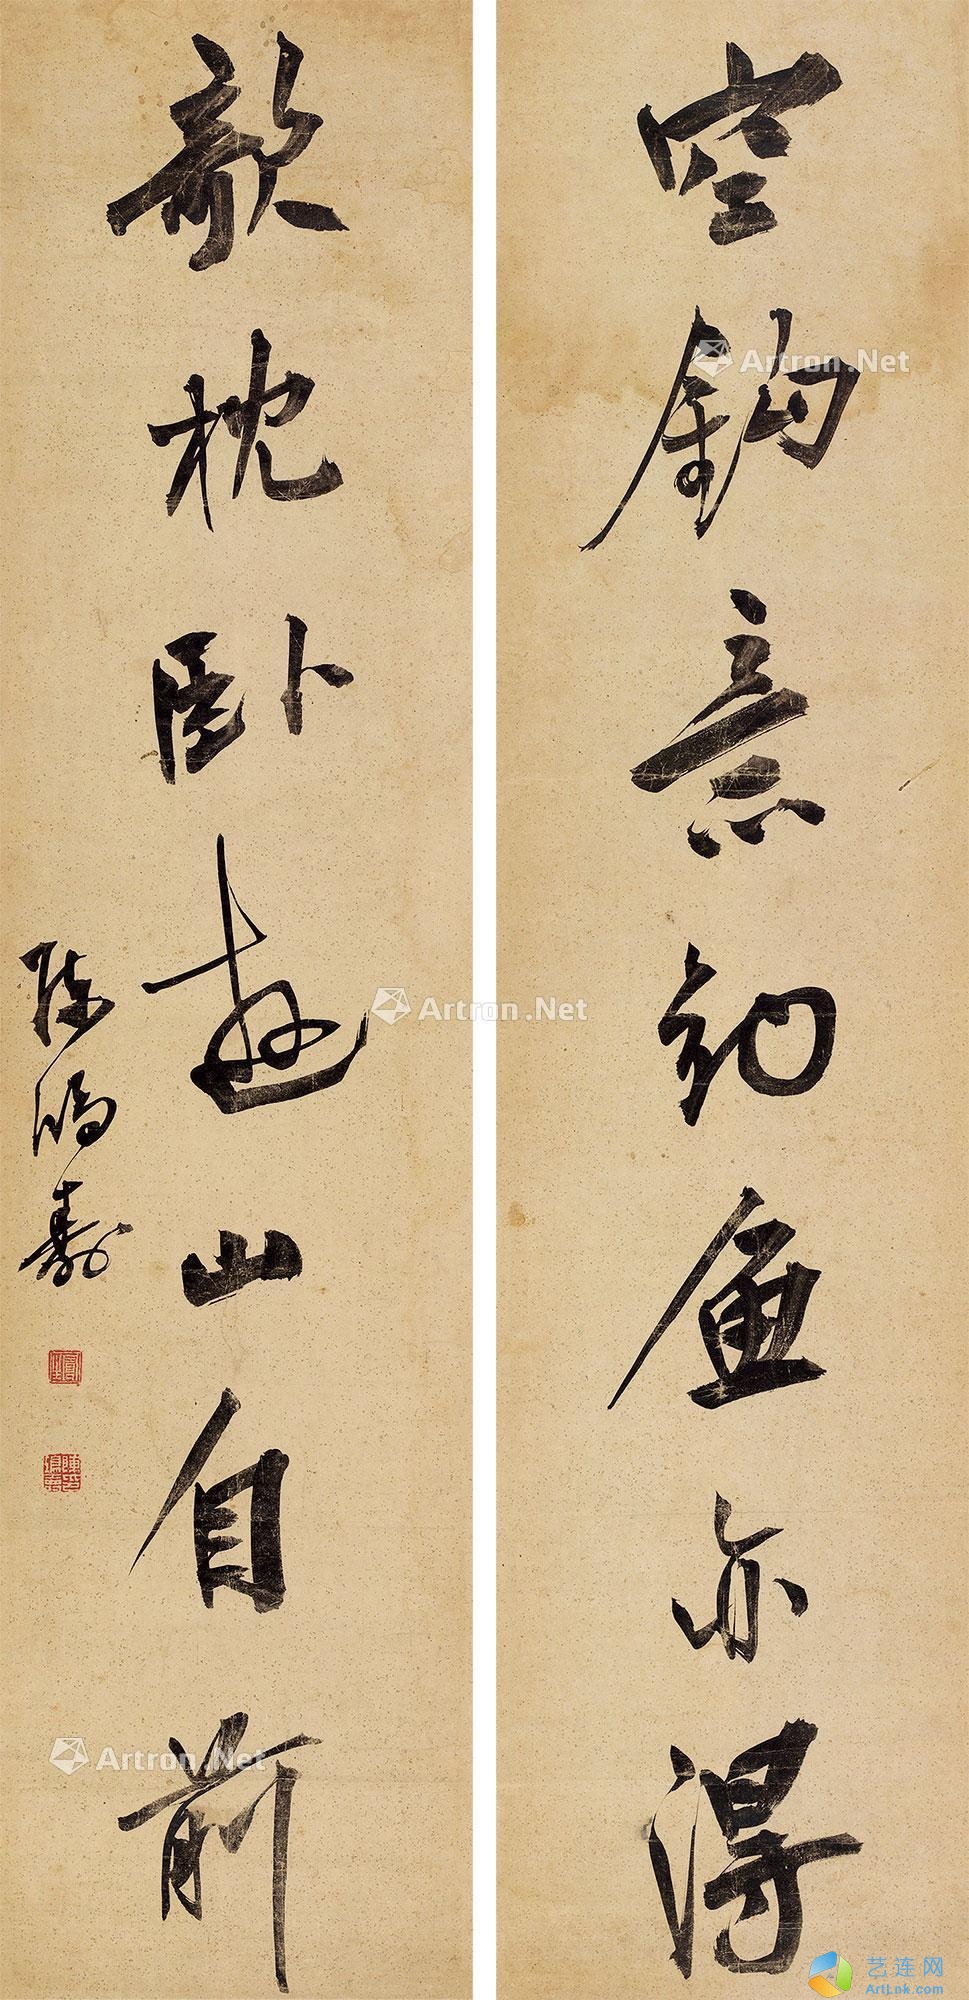 空钩意钓鱼亦得
欹枕卧游山自前
陈鸿寿
Artron.Net
Artron.Net
Artron.Net
艺连网
ArtLnk.com